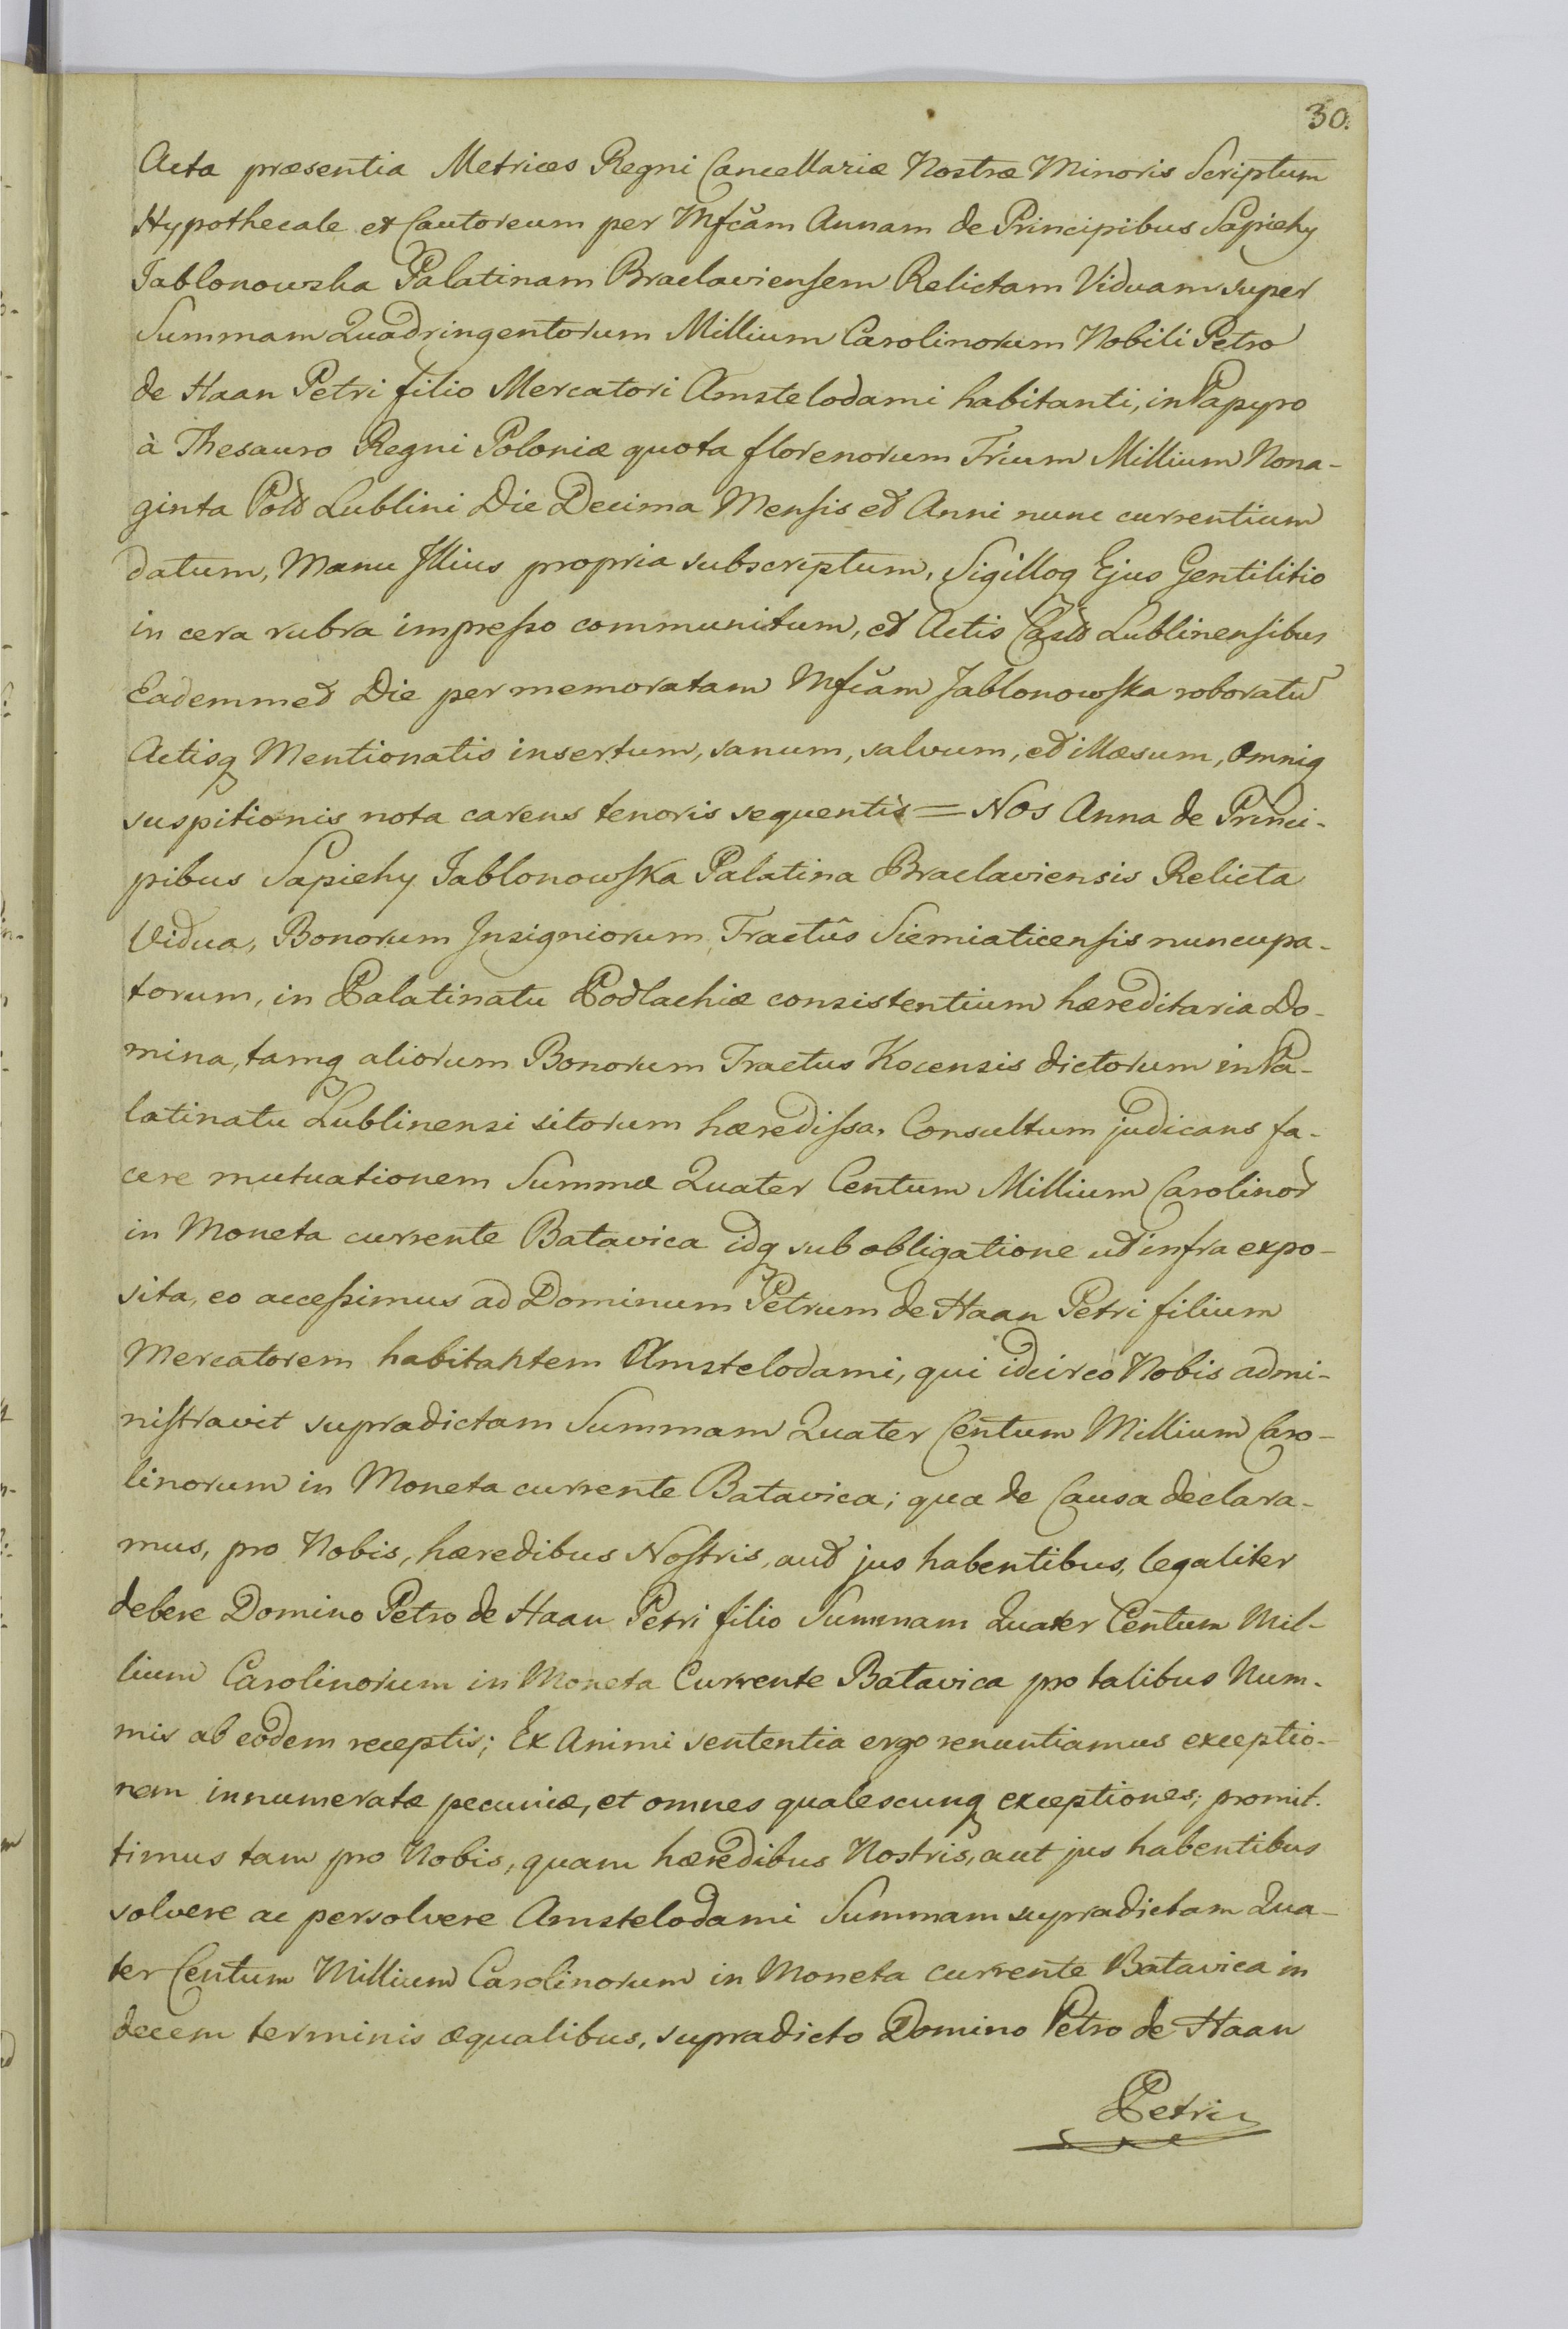 30.
Acta præsentia Metrices Regni Cancellariæ Nostræ Minoris Scriptum
Hypothecale et Cautoreum per Mfcăm Annam de Principibus Sapiehy
Jablonowska Palatinam Braclaviensem Relictam Viduam super
Summam Quadringentorum Millium Carolinorum Nobili Petro
de Haan Petri filio Mercatori Amstelodami habitanti, in Papyro
à Thesauro Regni Poloniæ quota florenorum Trium Millium Nona-
ginta Pold Lublini Die Decima Mensis et Anni nunc currentium
datum, Manu Illius propria subscriptum, Sigilloq Ejus Gentilitio
in cera rubra impresso communitum, et Actis Castr Lublinensibus
Eademmet Die per memoratam Mfcăm Jablonowska roboratũ
Actisq Mentionatis insertum, sanum, salvum, et illæsum, omniq
suspitionis nota carens tenoris sequentis = Nos Anna de Princi-
pibus Sapiehy Jablonowska Palatina Braclaviensis Relicta
Vidua, Bonorum Insigniorum Tractûs Siemiaticensis nuncupa-
torum, in Palatinatu Podlachiæ consistentium hæreditaria Do-
mina, tamq aliorum Bonorum Tractus Kocensis dictorum in Pa-
latinatu Lublinensi sitorum hæredissa. Consultum judicans fa-
cere mutuationem Summæ Quater Centum Millium Carolinor
in Moneta currente Batavica idq sub obligatione ut infra expo-
sita, eo accessimus ad Dominum Petrum de Haan Petri filium
Mercatorem habitantem Amstelodami, qui idcirco Nobis admi-
nistravit supradictam Summam Quater Centum Millium Caro-
linorum in Moneta currente Batavica; qua de Causa declara-
mus, pro Nobis, hæredibus Nostris, aut jus habentibus, legaliter
debere Domino Petro de Haan Petri filio Summam Quater Centum Mil-
lium Carolinorum in Moneta Currente Batavica pro talibus Num-
mis ab eodem receptis; Ex Animi sententia ergo renuntiamus exceptio-
nem innumeratæ pecuniæ, et omnes qualescunq exceptiones; promit-
timus tam pro Nobis, quam hæredibus Nostris, aut jus habentibus
solvere ac persolvere Amstelodami Summam supradictam Qua-
ter Centum Millium Carolinorum in Moneta currente Batavica in
decem terminis æqualibus, supradicto Domino Petro de Haan
Petri